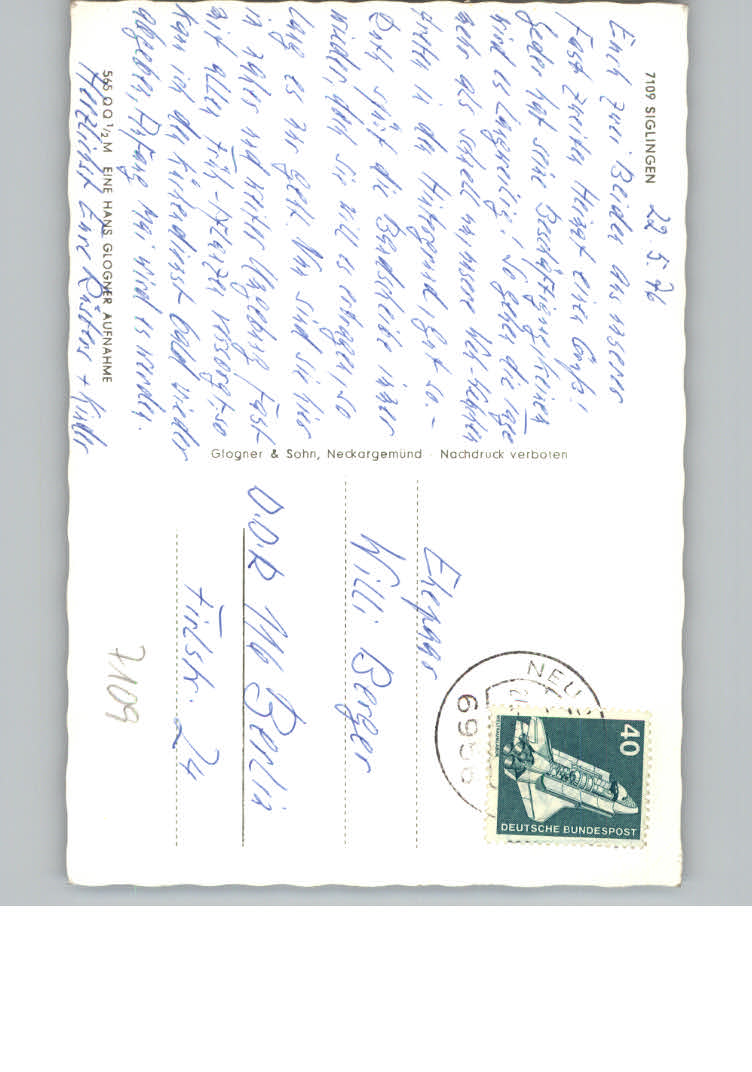 7109 SIGLINGEN
22.5.76
Euch zwei Beiden aus unserer
Fast zweiten Heimat einen Gruß!
Jeder hat seine Beschäftigung keinen
wird es langweilig! So gehen die Tage
mehr als schnell
treten in den Hintergrund, gut so. –
Ruth spürt die Bandscheibe immer
wieder, denn sie will es so
lang es nur geht. Nun sind wir hier
in naher und weiter Umgebung fast
mit allen Früh- versorgt, so
kann ich den bald wieder
abgeben, Anfang Mai wird es werden.
Herzlichst Eure + Kinder
565 QQ 1/2 M EINE HANS GLOGNER AUFNAHME
Glogner & Sohn, Neckargemünd · Nachdruck verboten
Ehepaar
Willi Berger
D.D.R 116 Berlin
24
7109
NEU
6956
40
DEUTSCHE BUNDESPOST